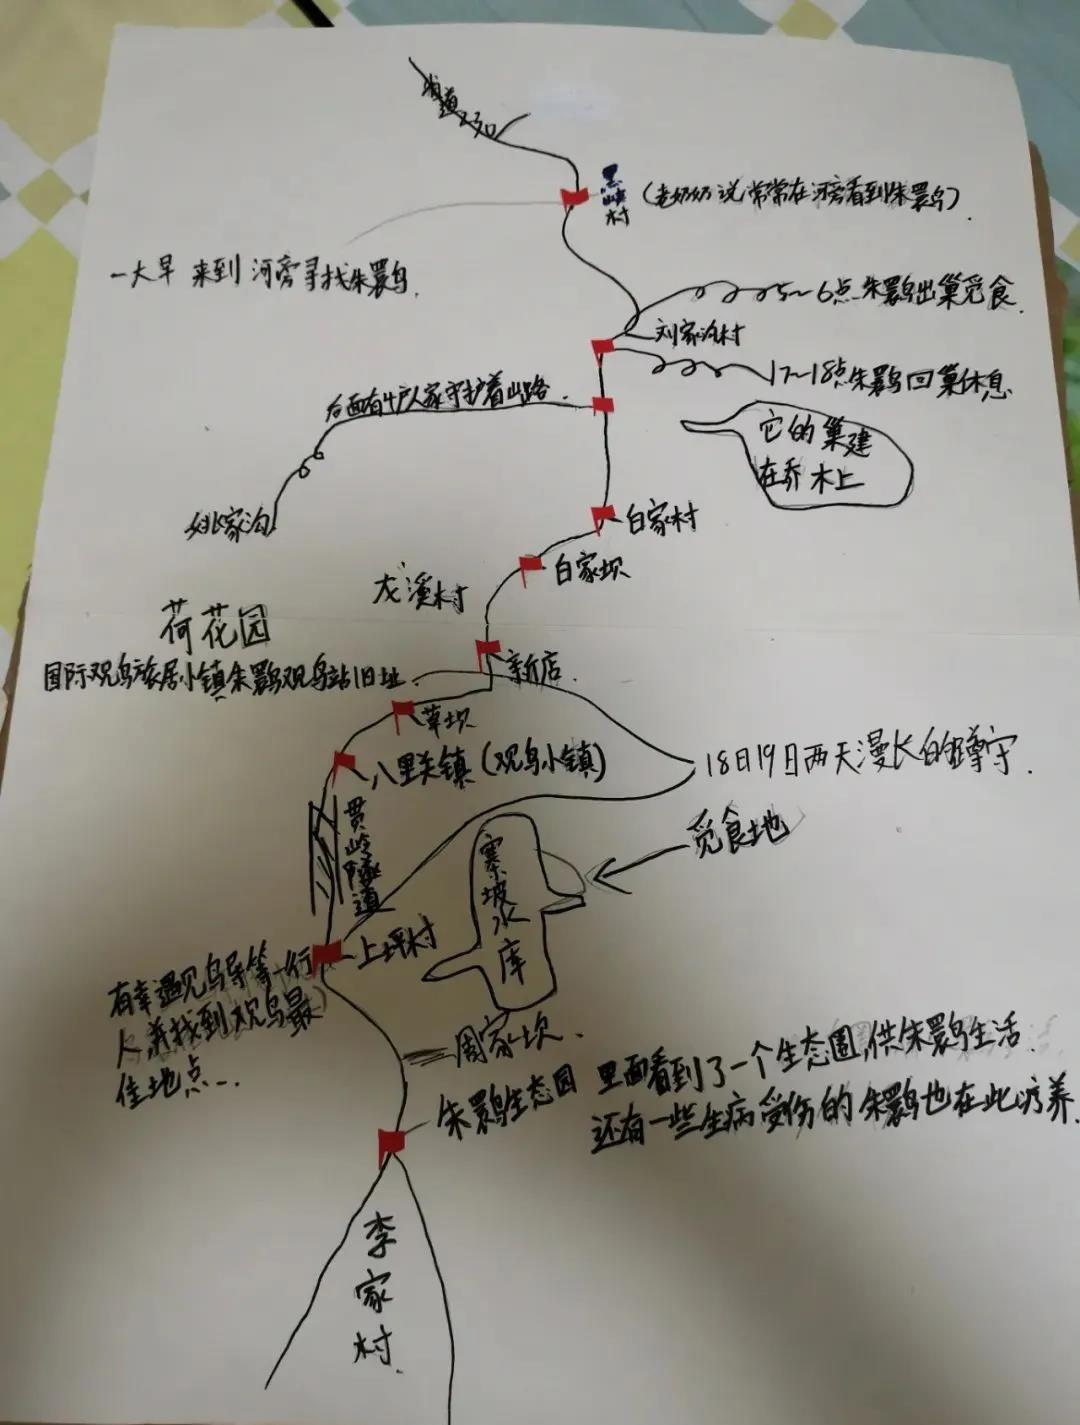 省道230
黑峡村
(老奶奶说常常在河旁看到朱鹮鸟).
一大早 来到河旁寻找朱鹮鸟.
5~6点朱鹮出巢觅食.
刘家沟村
17~18点朱鹮回巢休息
后面有4户人家守护着山路.
它的巢建
在乔木上
姚家沟
白家村
白家坝
龙溪村
荷花园
国际观鸟旅居小镇朱鹮观鸟站旧址.
新店.
草坝
八里关镇(观鸟小镇)
18日19日两天漫长的蹲守.
贯岭隧道
觅食地
寨坡水库
上坪村
有幸遇见鸟导等一行
人并找到观鸟最
佳地点...
周家坎.
朱鹮生态园
里面看到了一个生态圈,供朱鹮生活.
还有一些生病受伤的朱鹮也在此疗养.
李家村.